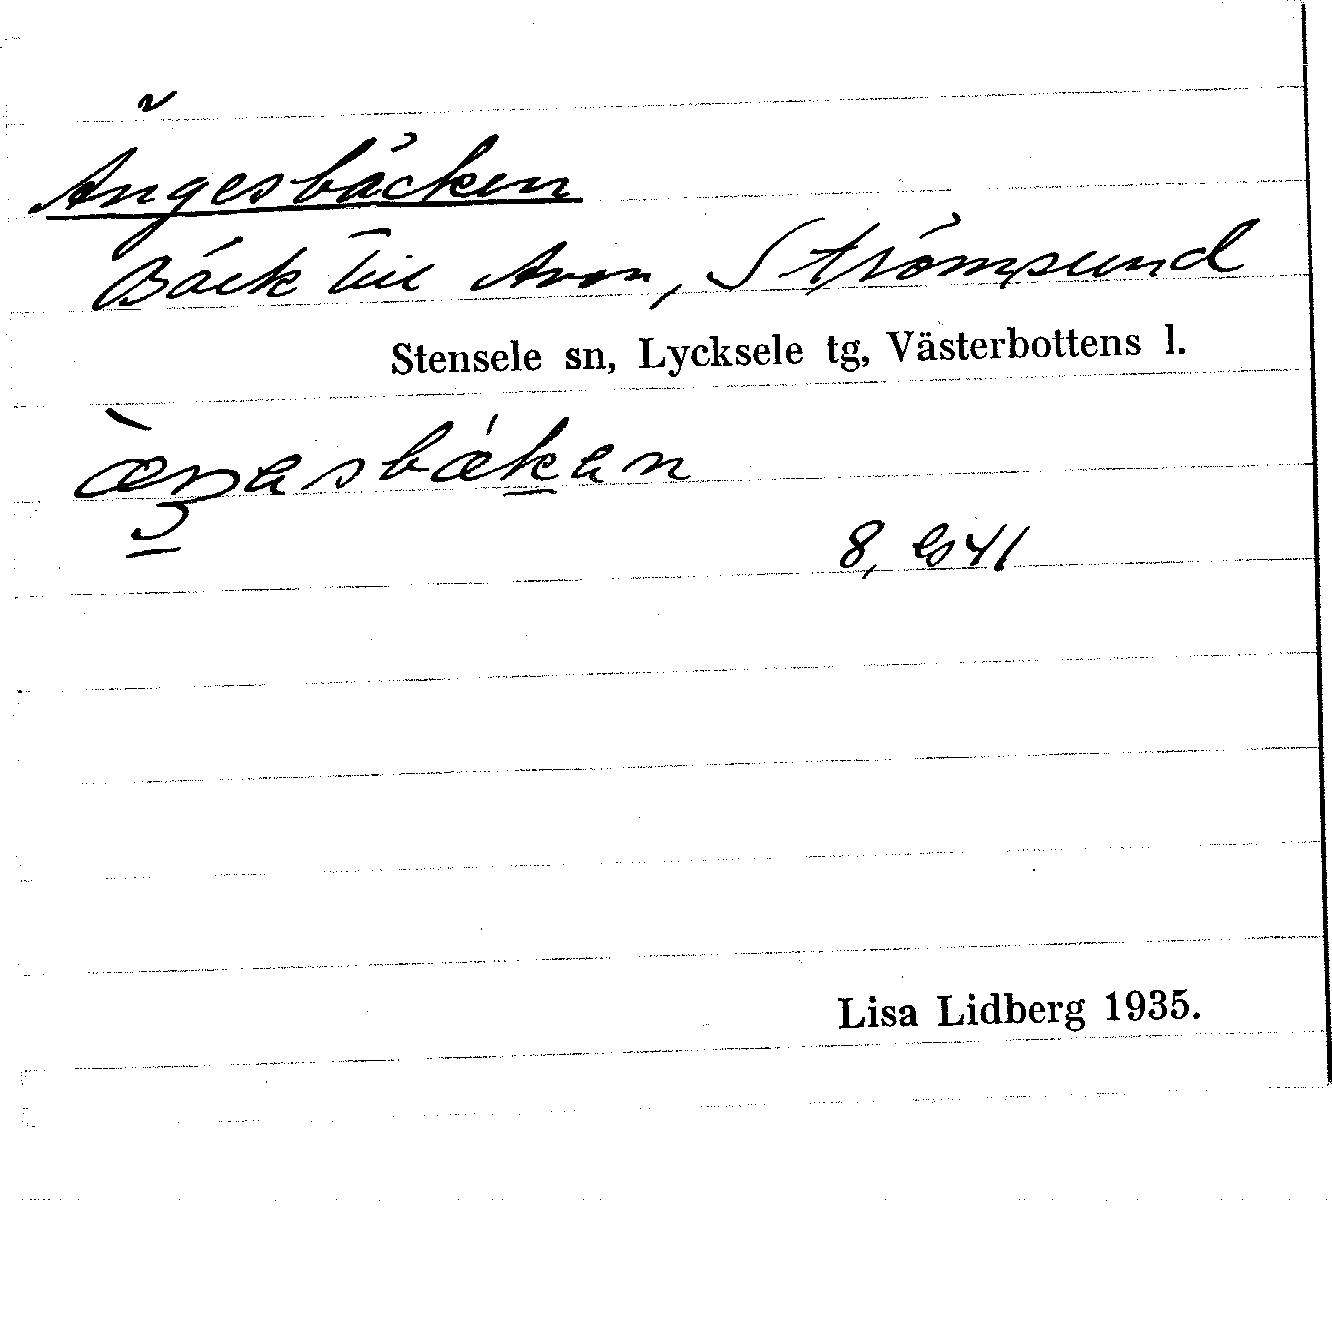 Ängesbäcken
Bäck till Avan, Strömsund
Stensele sn, Lycksele tg, Västerbottens l.
æŋasbækan
8,
Lisa Lidberg 1935.